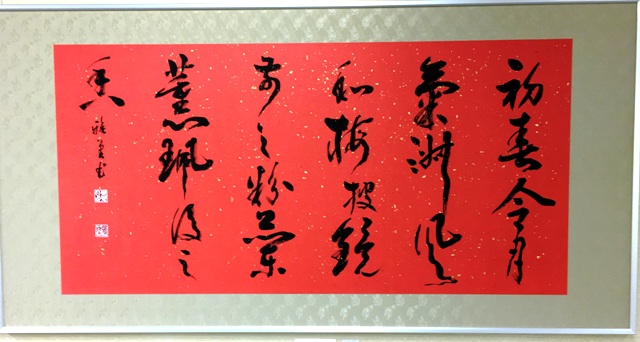 初春令月
氣淑風
和梅披鏡
前之粉蘭
薫珮後之
香